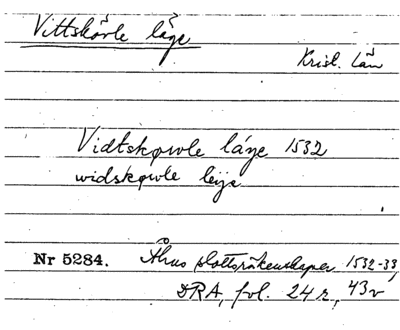 Vittskövle läge
Krist. län
Vidtskøwle láge 1532
widskøwle leije
Nr 5284. Åhus slottsräkenskaper 1532-33,
DRA, fol. 24 r, 43 v